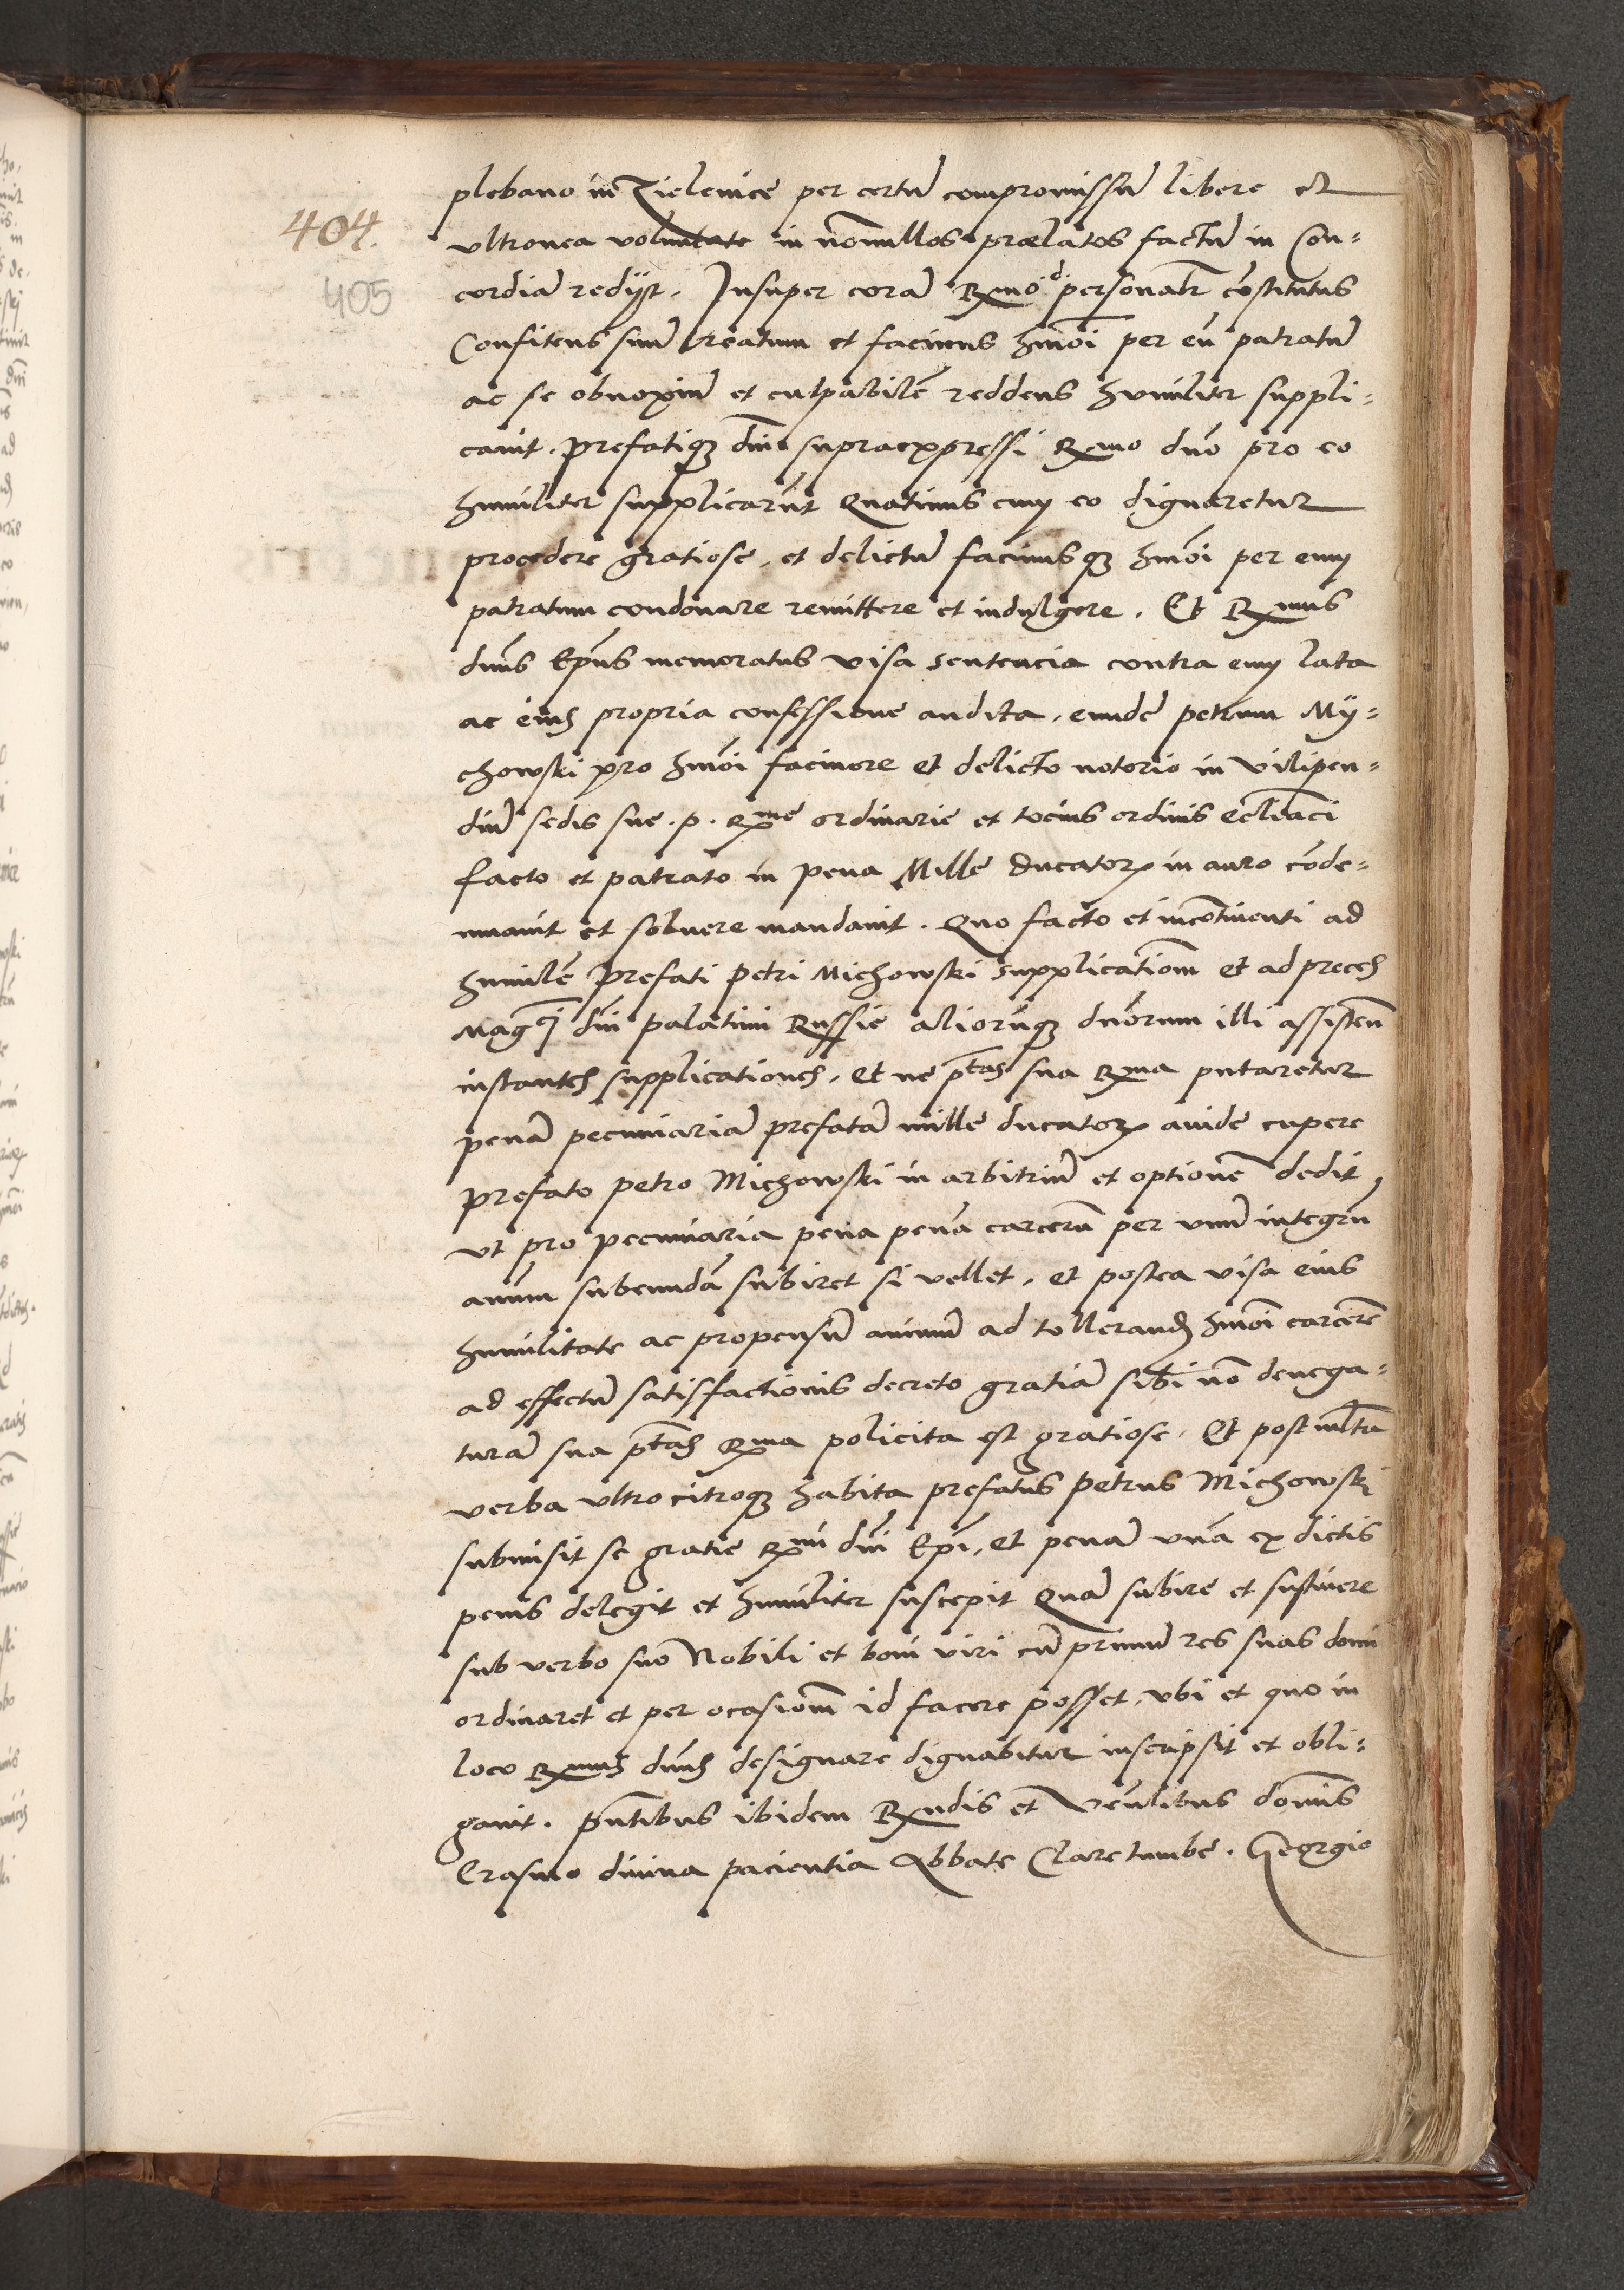 plebano in Zielenice per certū compromissū libere et
404.
vltronea voluntate in nōnullos prælatos factū in Con=
405
cordiā redijt. Insuper corā Rxmo d. personalr̄ cōstitutus
Confitens suū reatum et facinus hmōi per eū patratū
ac se obnoxiū et culpabilē reddens humiliter suppli=
cauit. Prefatiqȝ dn̄i supraexpressi Rxmo dn̄o pro eo
humiliter supplicarūt Quatinus cum eo dignaretur
procedere gratiose, et delictū facinusqȝ hmōi per eum
patratum condonare remittere et indulgere. Et Rxmus
dn̄us Ep̄us memoratus visa sentencia contra eum lata
ac eius propria confessione audita, eundē petrum My=
chowski pro hmōi facinore et delicto notorio in vilipen=
diū sedis sue .p. Rxme ordinarie et tocius ordinis eccleāci
facto et patrato in pena Mille ducatorꝝ in auro cōde=
mnauit et soluere mandauit. Quo facto et incōtinenti ad
humilē Prefati Petri Michowski supplicationē et ad preces
Mag̅ci dn̄i palatini Russie aliorūqȝ dn̄orum illi assistenū
instantes supplicationes, Et ne p̄tas sua Rxma putaretur
penā pecuniariā prefatā mille ducatorꝝ auide cupere
prefato petro Michowski in arbitriū et optionē dedit,
vt pro pecuniaria pena penā carcerū per vnū integrū
annum subeundā subiret si vellet, et postea visa eius
humilitate ac propensū animū ad tollerandȝ hmōi carcerē
ad effectū satisfactionis decreto gratiā sibi nō denega=
turā sua p̄tas Rxma policita est gratiose. Et post multa
verba vltrocitroqȝ habita prefatus Petrus Michowski
submisit se gratie Rxmi dn̄i Ep̄i, et penā vnā ex dictis
penis delegit et humiliter suscepit Quā subire et sustinere
sub verbo suo Nobili et boni viri cū primū res suas domi
ordinaret et per ocasionē id facere posset, vbi et quo in
loco Rxmus dn̄us designare dignabitur inscripsit et obli=
gauit. Pn̄tibus ibidem Rxndis et Ven̄libus dominis
Erasmo diuina pacientia Abbate Clare tumbe. Georgio